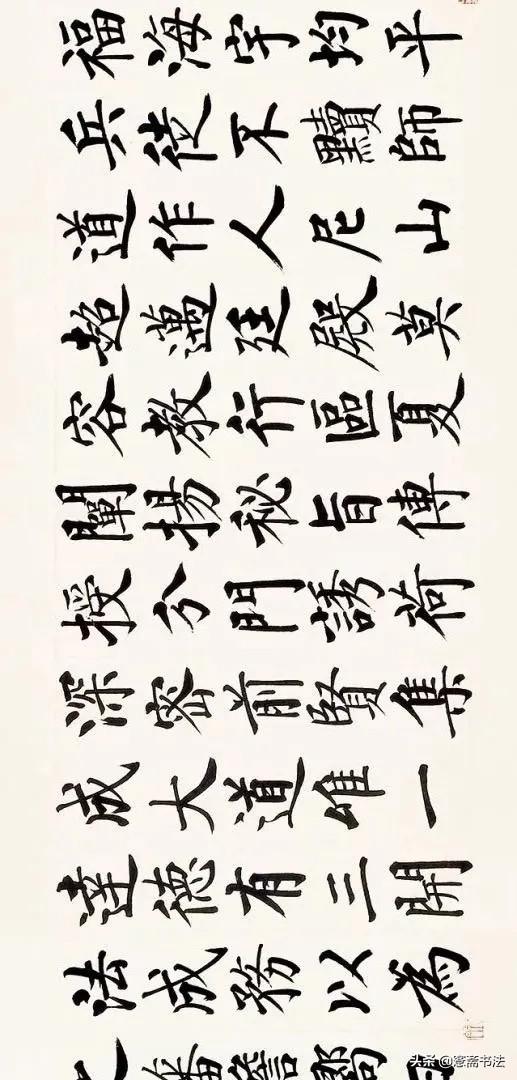 福海宇均平
兵徒不黷師
道作人尼山
超邁廷殿莫
容教行區夏
闡揚秘旨傳
授分門誘荷
深密前賢集
成大道唯一
達德有三開
法成務以為
头条 @斋书法